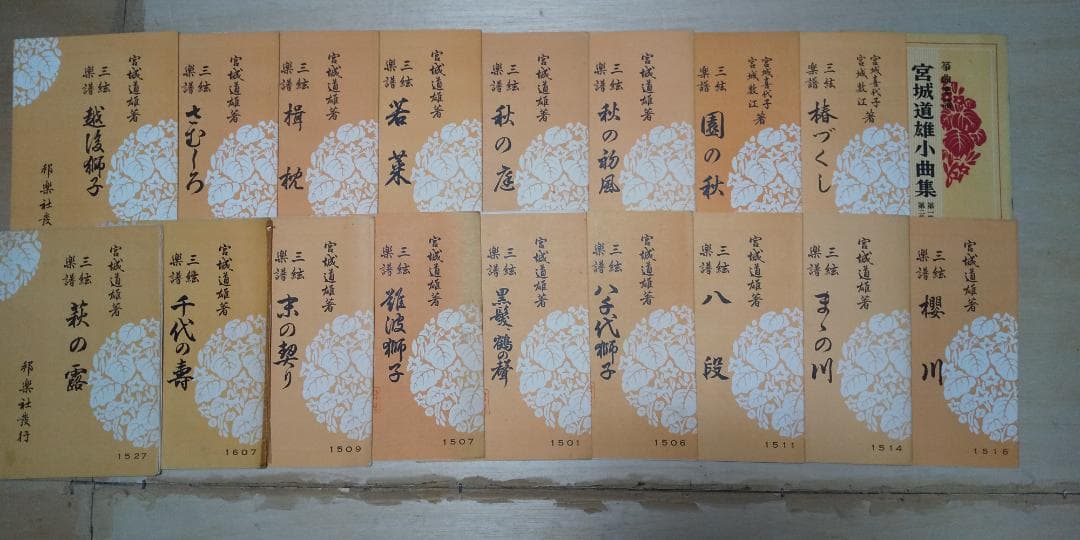 宮城道雄著
三絃
樂譜
越後獅子
邦樂社發
宮城道雄著
三絃
樂譜
さむしろ
宮城道雄著
三絃
樂譜
楫枕
宮城道雄著
三絃
樂譜
若菜
宮城道雄著
三絃
樂譜
秋の庭
宮城道雄著
三絃
樂譜
秋の初風
宮城喜代子
宮城数江
著
三絃
樂譜
園の秋
宮城喜代子
宮城数江
著
三絃
樂譜
椿づくし
宮城道雄小曲集
宮城道雄著
三絃
樂譜
萩の露
邦樂社發行
1527
宮城道雄著
三絃
樂譜
千代の壽
1607
宮城道雄著
三絃
樂譜
末の契り
1509
宮城道雄著
三絃
樂譜
難波獅子
1507
宮城道雄著
三絃
樂譜
黒髪、鶴の聲
1501
宮城道雄著
三絃
樂譜
八千代獅子
1506
宮城道雄著
三絃
樂譜
八段
1511
宮城道雄著
三絃
樂譜
まゝの川
1514
宮城道雄著
三絃
樂譜
櫻川
1516